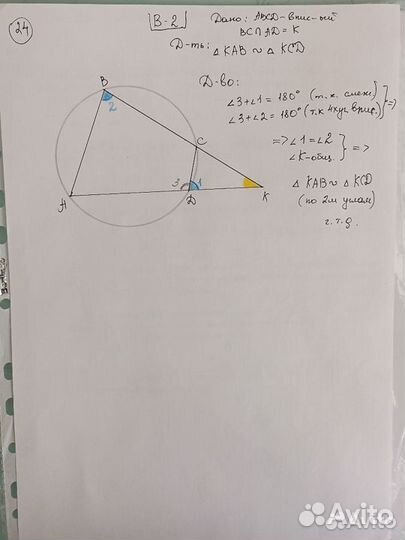 24
В-2
Дано: ABCD-впис-ый
BC∩AD=K
Д-ть: △KAB ∾ △KCD
Д-во:
∠3+∠1=180° (т.к. смеж)
∠3+∠2=180° (т.к 4хуг. впис.) } =>
=> ∠1=∠2
∠K-общ. } =>
△KAB ∾ △KCD
(по 2м углам)
ч.т.д.
B
2
C
3
1
A
D
K
Avito